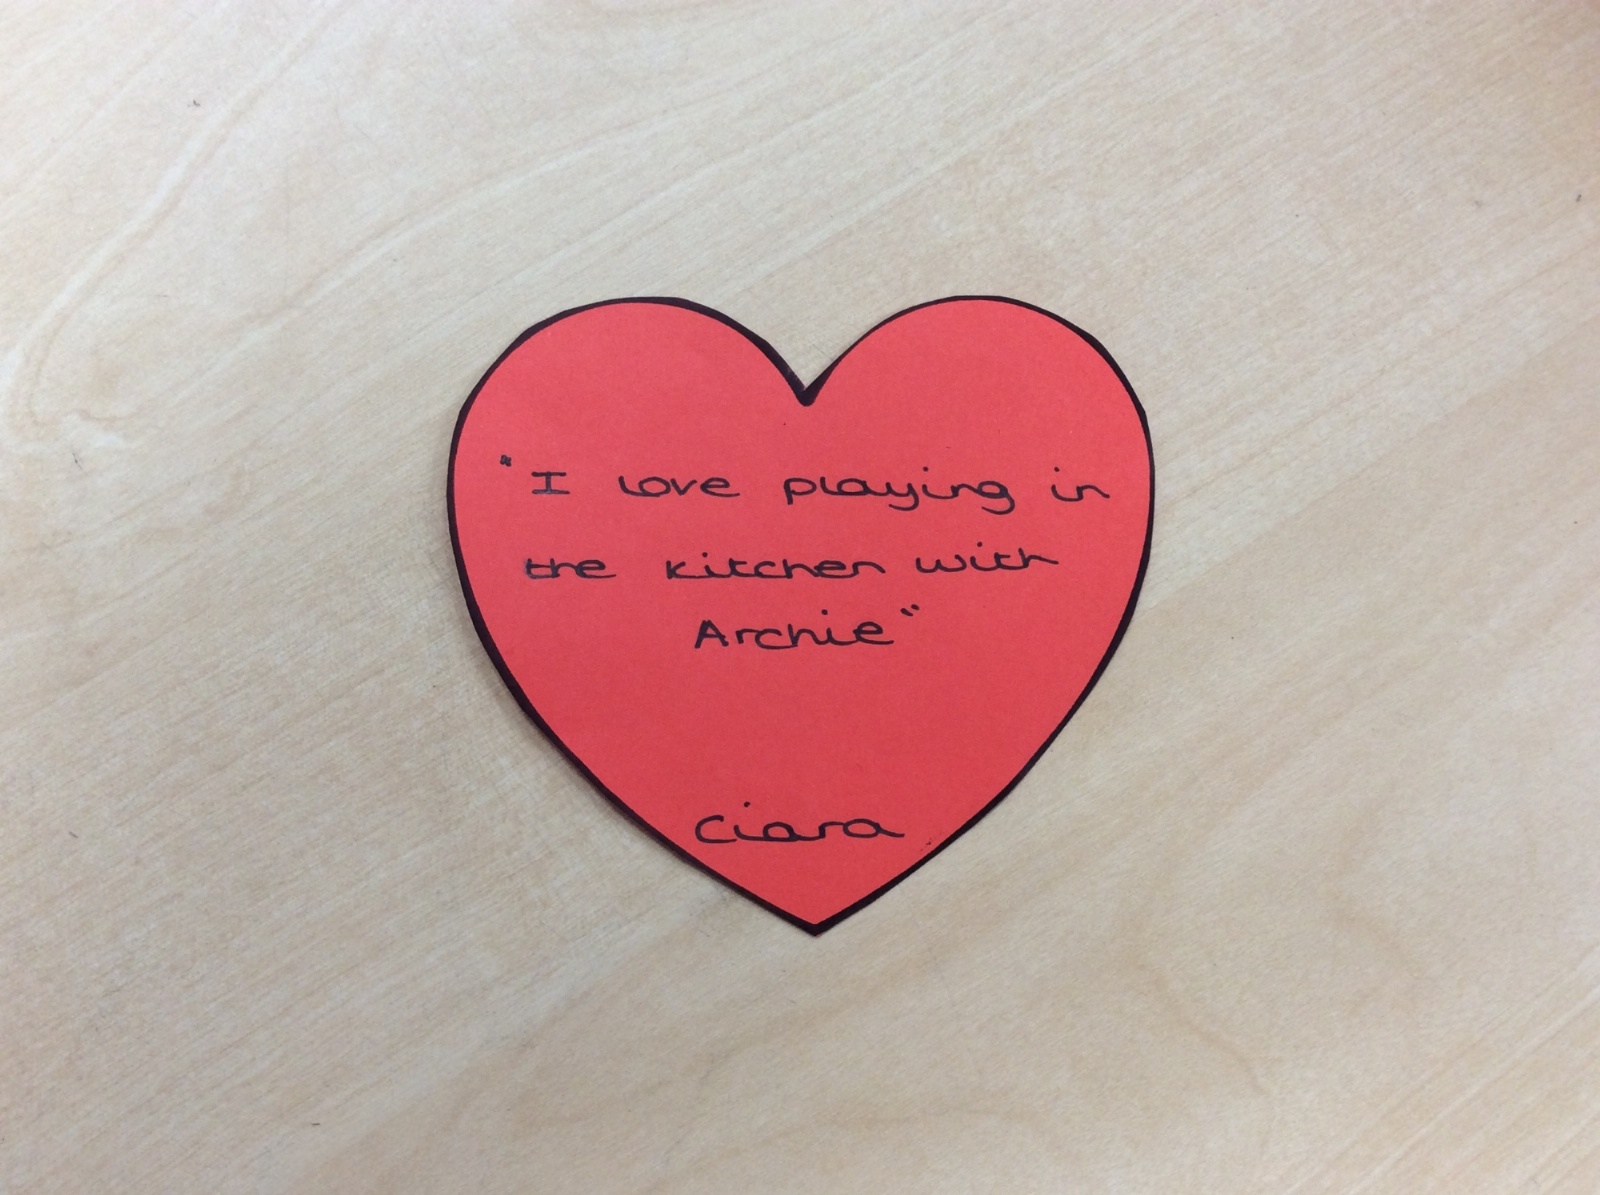 "I love playing in
the kitchen with
Archie"
Ciara